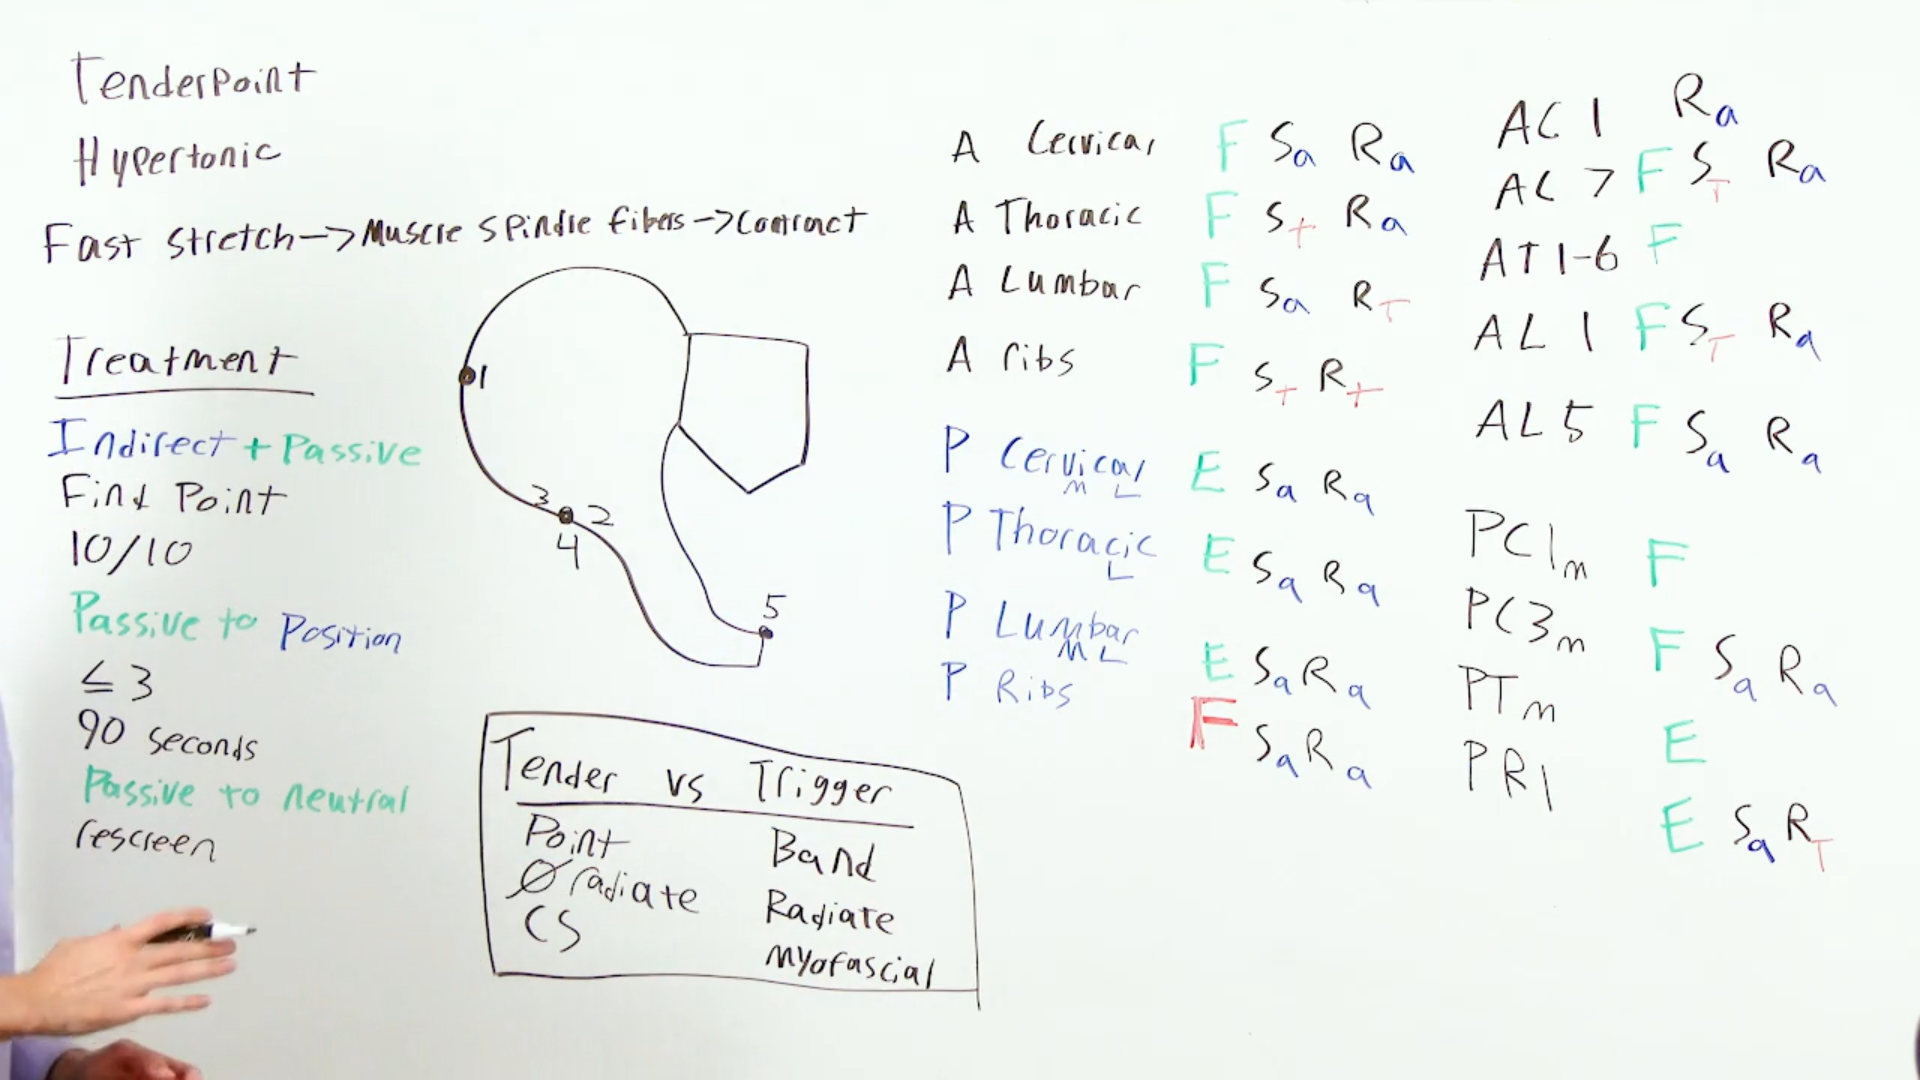 Tenderpoint
Hypertonic
Fast stretch->Muscle spindle fibers->Contract
Treatment
Indirect + Passive
Find Point
10/10
Passive to Position
≤ 3
90 seconds
Passive to neutral
rescreen
1
3 2
4
5
Tender vs Trigger
Point Band
Ø radiate Radiate
CS myofascial
A Cervical F Sa Ra
A Thoracic F ST Ra
A Lumbar F Sa RT
A ribs F ST RT
P Cervical E Sa Ra
M L
P Thoracic E Sa Ra
L
P Lumbar E Sa Ra
M L
P Ribs F Sa Ra
AC 1 Ra
AC 7 F ST Ra
AT 1-6 F
AL 1 F ST Ra
AL 5 F Sa Ra
PC1m F
PC3m F Sa Ra
PTm E
PR1 E Sa RT